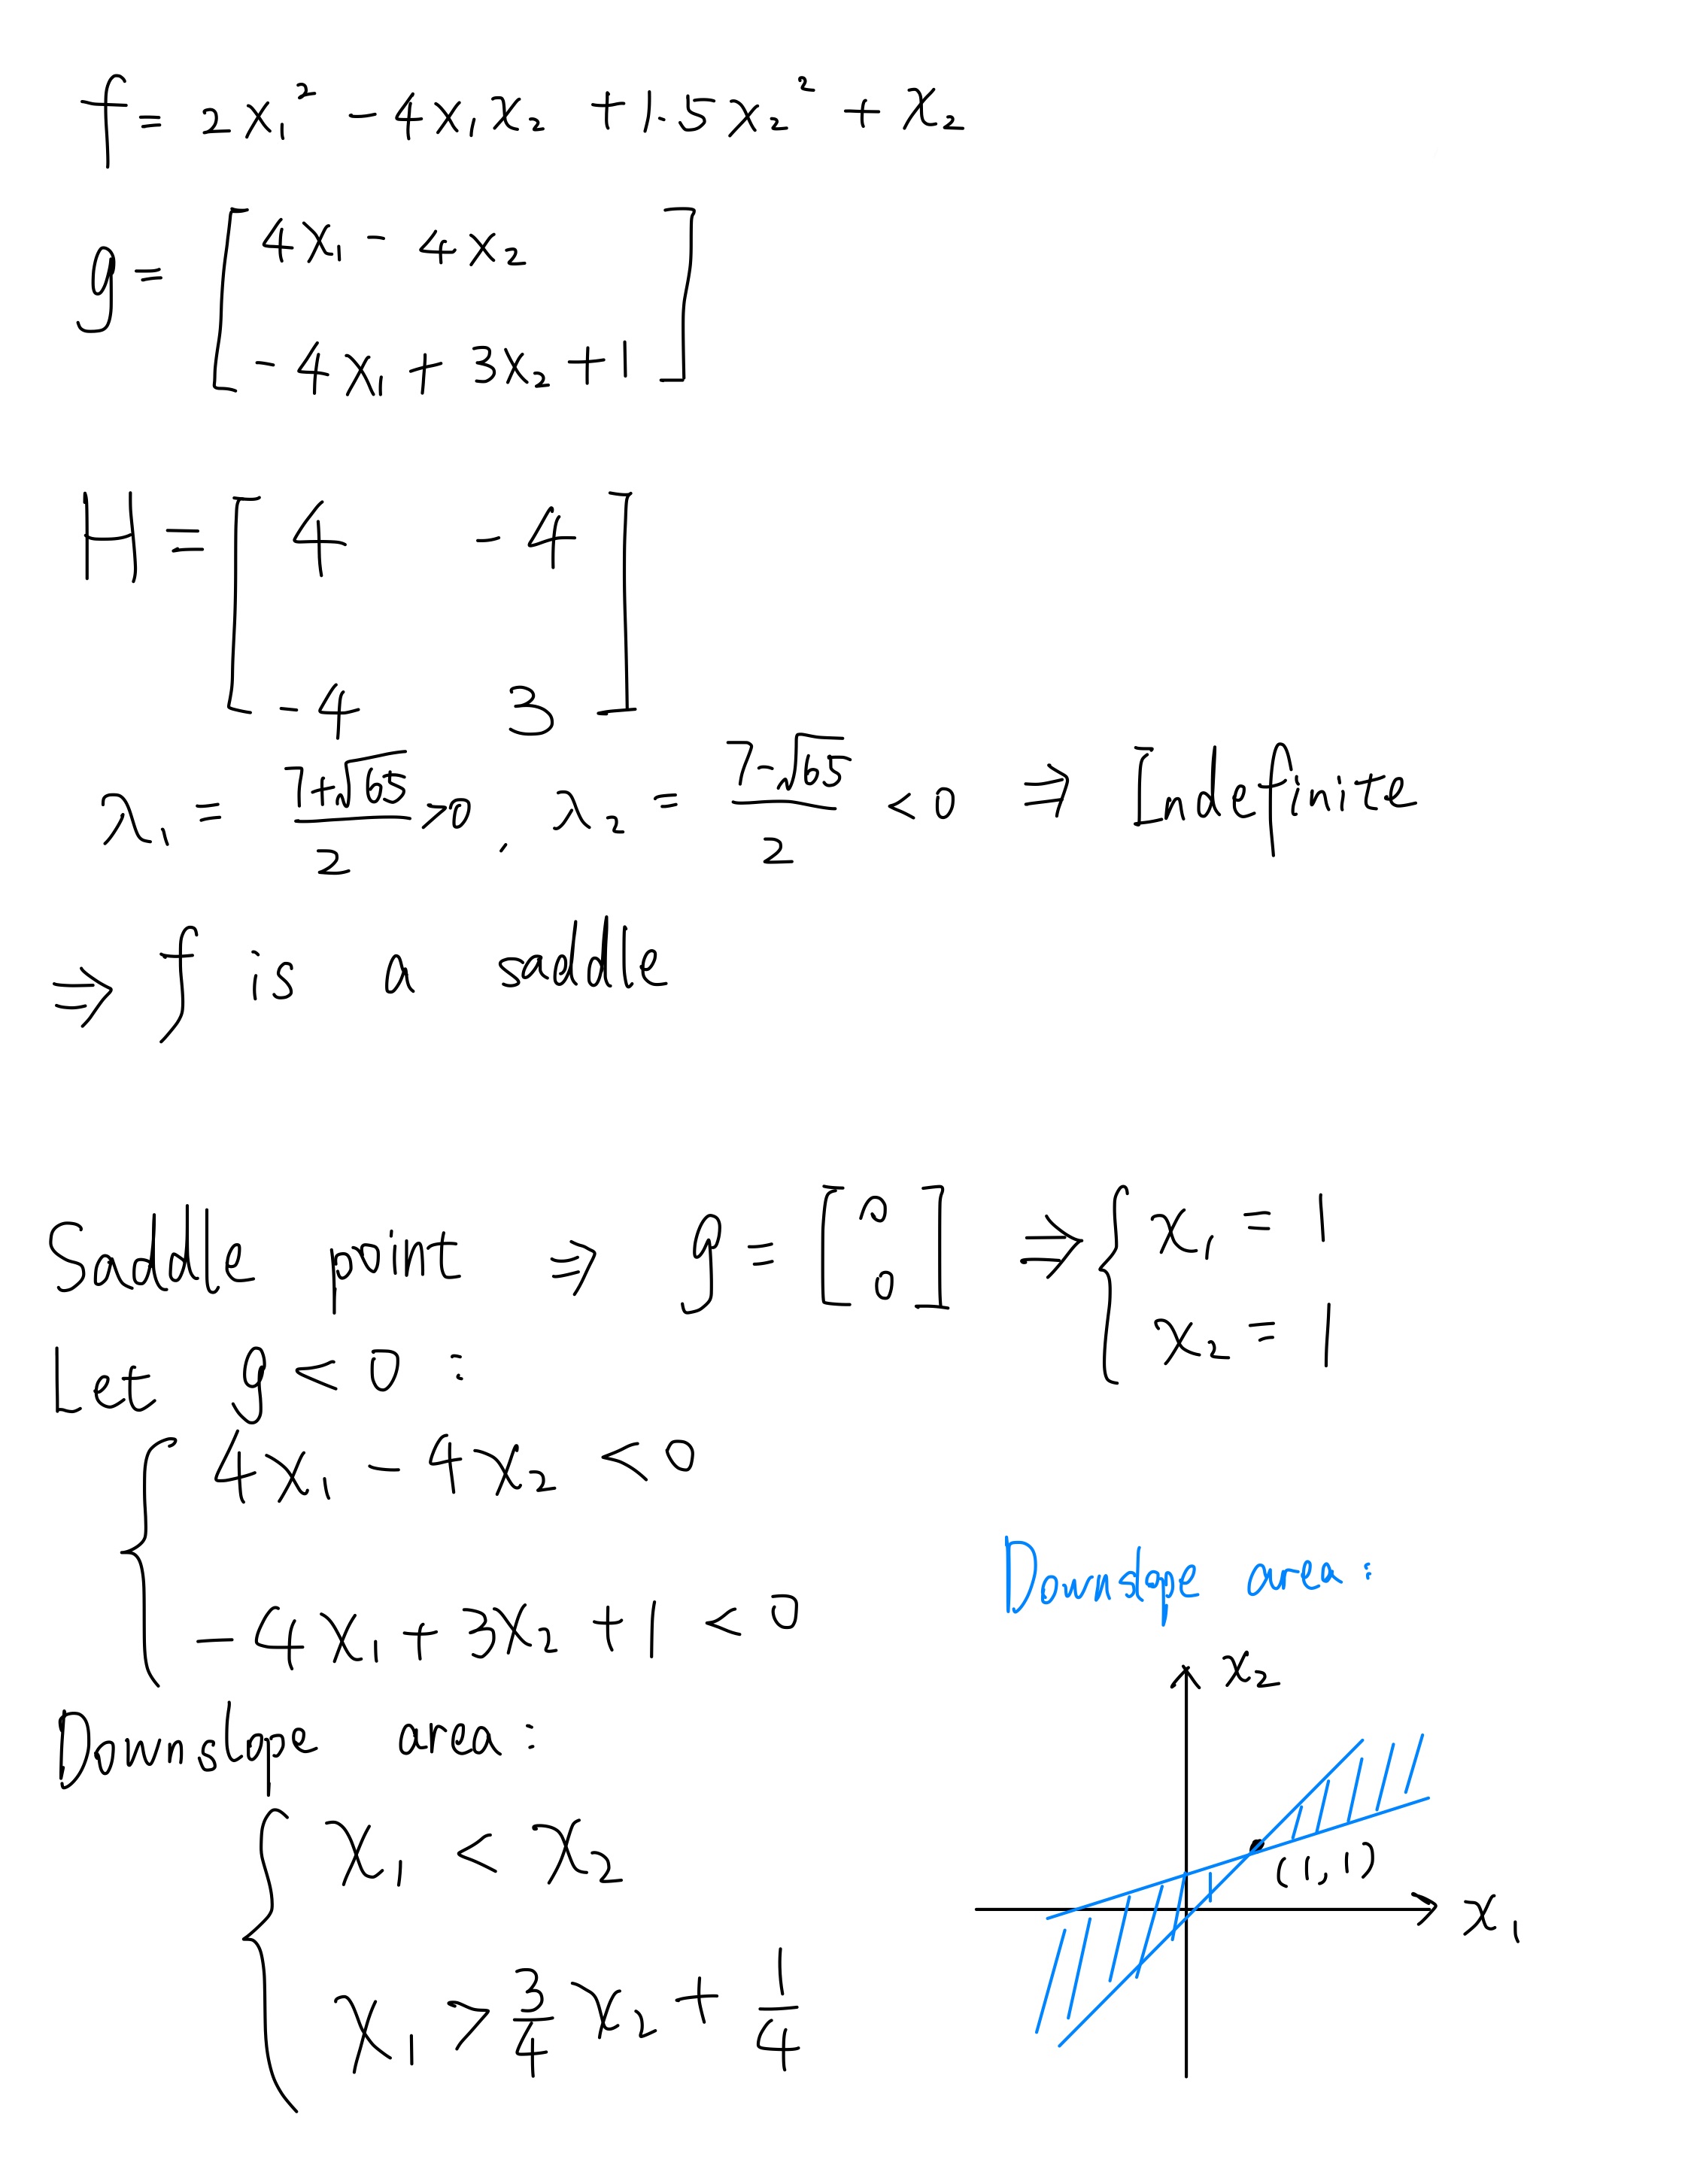 f = 2x₁² - 4x₁x₂ + 1.5x₂² + x₂
g = [ 4x₁ - 4x₂
-4x₁ + 3x₂ + 1 ]
H = [ 4 -4
-4 3 ]
λ₁ = (7+√65)/2 >0, λ₂ = (7-√65)/2 <0 ⇒ Indefinite
⇒ f is a saddle
Saddle point ⇒ g = [0 0] ⇒ { x₁ = 1
x₂ = 1
Let g < 0 :
{ 4x₁ - 4x₂ < 0
-4x₁ + 3x₂ + 1 < 0
Downslope area:
{ x₁ < x₂
x₁ > 3/4 x₂ + 1/4
Downslope area:
x₂
(1,1)
x₁